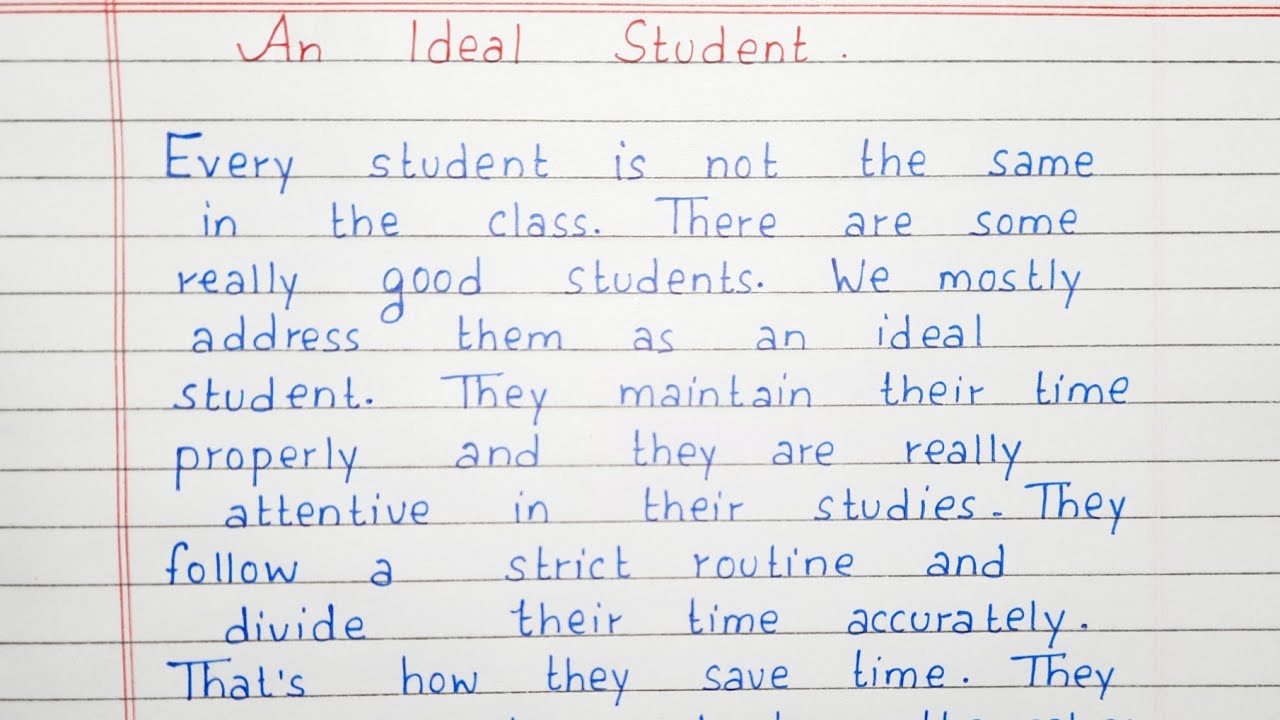 An Ideal Student.
Every student is not the same
in the class. There are some
really good students. We mostly
address them as an ideal
student. They maintain their time
properly and they are really
attentive in their studies. They
follow a strict routine and
divide their time accurately.
That's how they save time. They